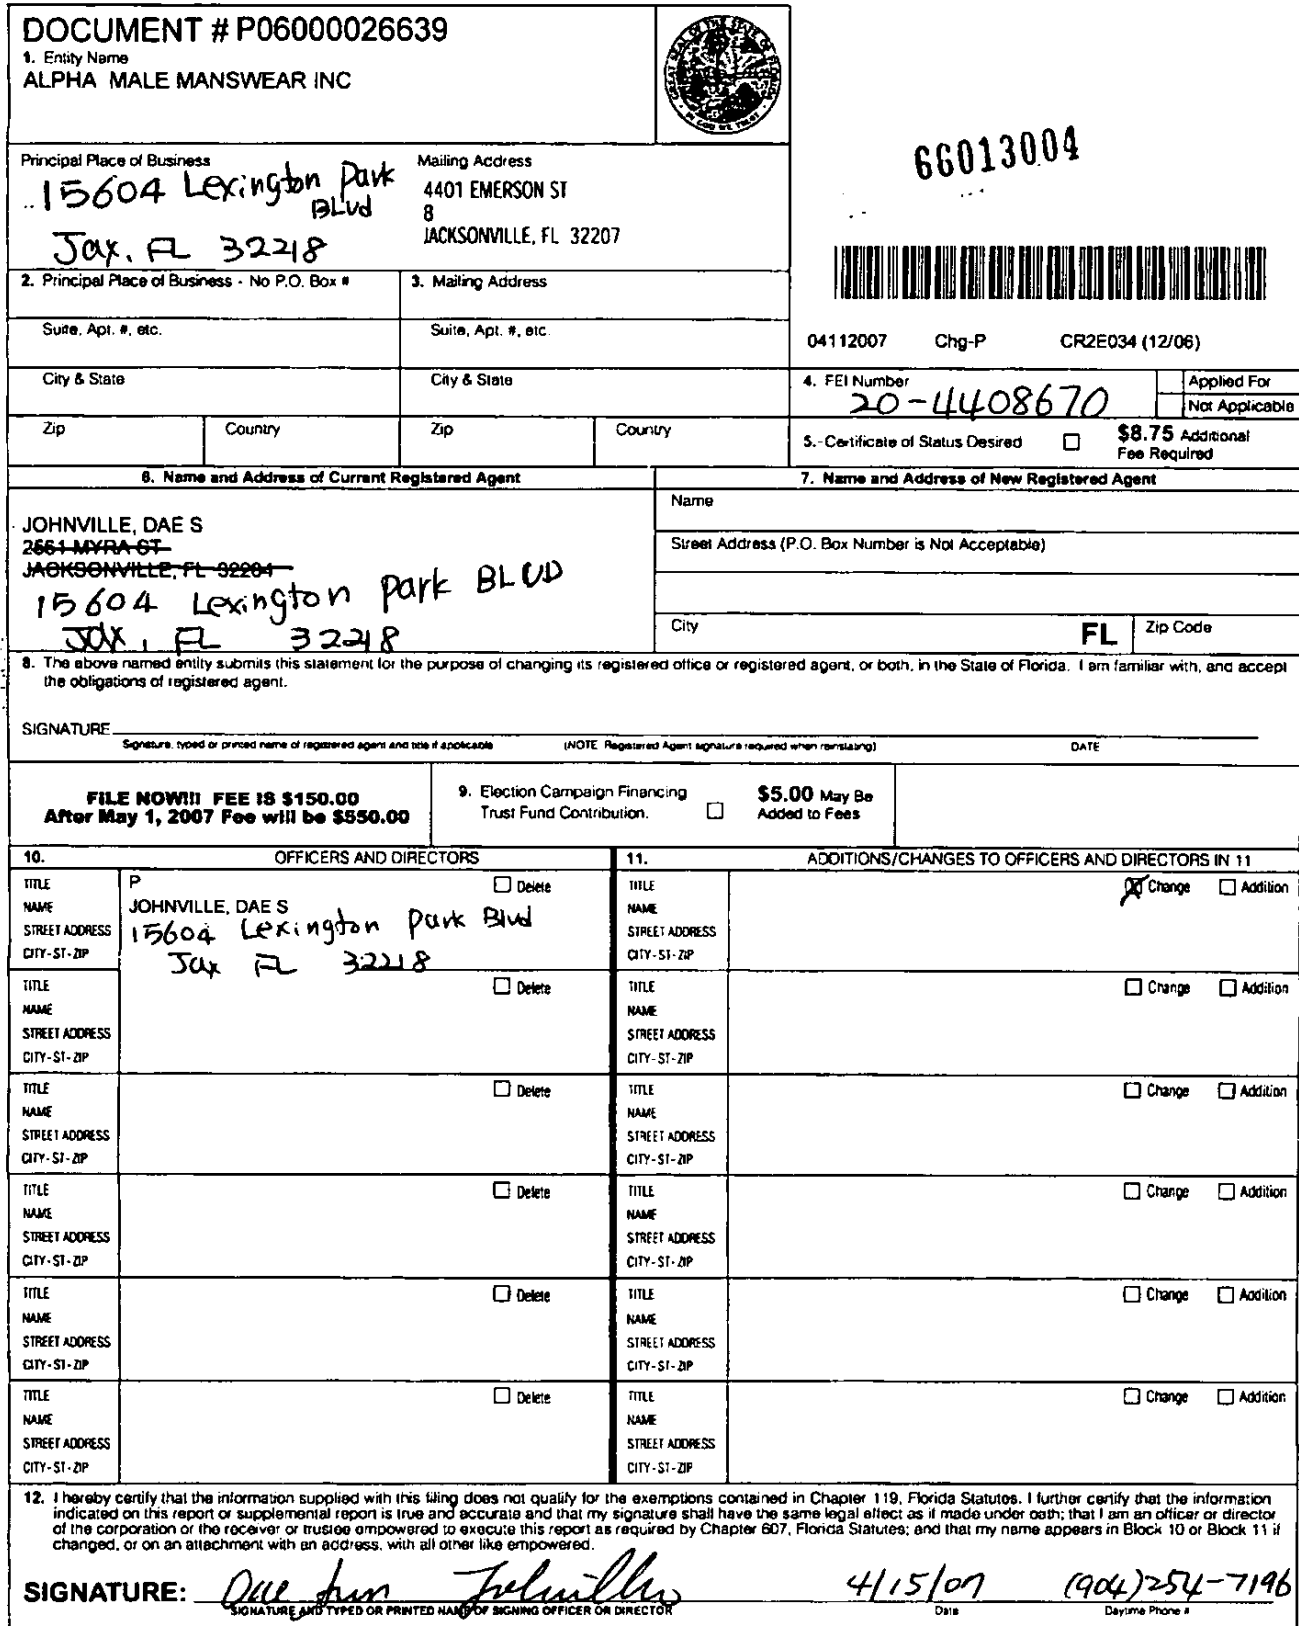 DOCUMENT # P06000026639
1. Entity Name
ALPHA MALE MANSWEAR INC
GREAT SEAL OF THE STATE OF FLORIDA
IN GOD WE TRUST
66013004
Principal Place of Business
15604 Lexington Park
BLvd
Jax, FL 32218
Mailing Address
4401 EMERSON ST
8
JACKSONVILLE, FL 32207
2. Principal Place of Business - No P.O. Box #
3. Mailing Address
Suite, Apt. #, etc.
Suite, Apt. #, etc.
04112007 Chg-P CR2E034 (12/06)
City & State
City & State
4. FEI Number
20-4408670
Applied For
Not Applicable
Zip
Country
Zip
Country
5. Certificate of Status Desired
$8.75 Additional
Fee Required
6. Name and Address of Current Registered Agent
7. Name and Address of New Registered Agent
JOHNVILLE, DAE S
2551 MYRA ST
JACKSONVILLE, FL 32204
15604 Lexington Park BLVD
Jax, FL 32218
Name
Street Address (P.O. Box Number is Not Acceptable)
City
FL
Zip Code
8. The above named entity submits this statement for the purpose of changing its registered office or registered agent, or both, in the State of Florida. I am familiar with, and accept
the obligations of registered agent.
SIGNATURE
Signature, typed or printed name of registered agent and title if applicable
(NOTE Registered Agent signature required when reinstating)
DATE
FILE NOW!!! FEE IS $150.00
After May 1, 2007 Fee will be $550.00
9. Election Campaign Financing
Trust Fund Contribution.
$5.00 May Be
Added to Fees
10. OFFICERS AND DIRECTORS
11. ADDITIONS/CHANGES TO OFFICERS AND DIRECTORS IN 11
TITLE P Delete
NAME JOHNVILLE, DAE S
STREET ADDRESS 15604 Lexington Park Blvd
CITY-ST-ZIP Jax FL 32218
TITLE Change Addition
NAME
STREET ADDRESS
CITY-ST-ZIP
TITLE Delete
NAME
STREET ADDRESS
CITY-ST-ZIP
TITLE Change Addition
NAME
STREET ADDRESS
CITY-ST-ZIP
TITLE Delete
NAME
STREET ADDRESS
CITY-ST-ZIP
TITLE Change Addition
NAME
STREET ADDRESS
CITY-ST-ZIP
TITLE Delete
NAME
STREET ADDRESS
CITY-ST-ZIP
TITLE Change Addition
NAME
STREET ADDRESS
CITY-ST-ZIP
TITLE Delete
NAME
STREET ADDRESS
CITY-ST-ZIP
TITLE Change Addition
NAME
STREET ADDRESS
CITY-ST-ZIP
TITLE Delete
NAME
STREET ADDRESS
CITY-ST-ZIP
TITLE Change Addition
NAME
STREET ADDRESS
CITY-ST-ZIP
12. I hereby certify that the information supplied with this filing does not qualify for the exemptions contained in Chapter 119, Florida Statutes. I further certify that the information
indicated on this report or supplemental report is true and accurate and that my signature shall have the same legal effect as if made under oath; that I am an officer or director
of the corporation or the receiver or trustee empowered to execute this report as required by Chapter 607, Florida Statutes; and that my name appears in Block 10 or Block 11 if
changed, or on an attachment with an address, with all other like empowered.
SIGNATURE: Dae Sun Johnville 4/15/07 (904)254-7196
SIGNATURE AND TYPED OR PRINTED NAME OF SIGNING OFFICER OR DIRECTOR
Date
Daytime Phone #